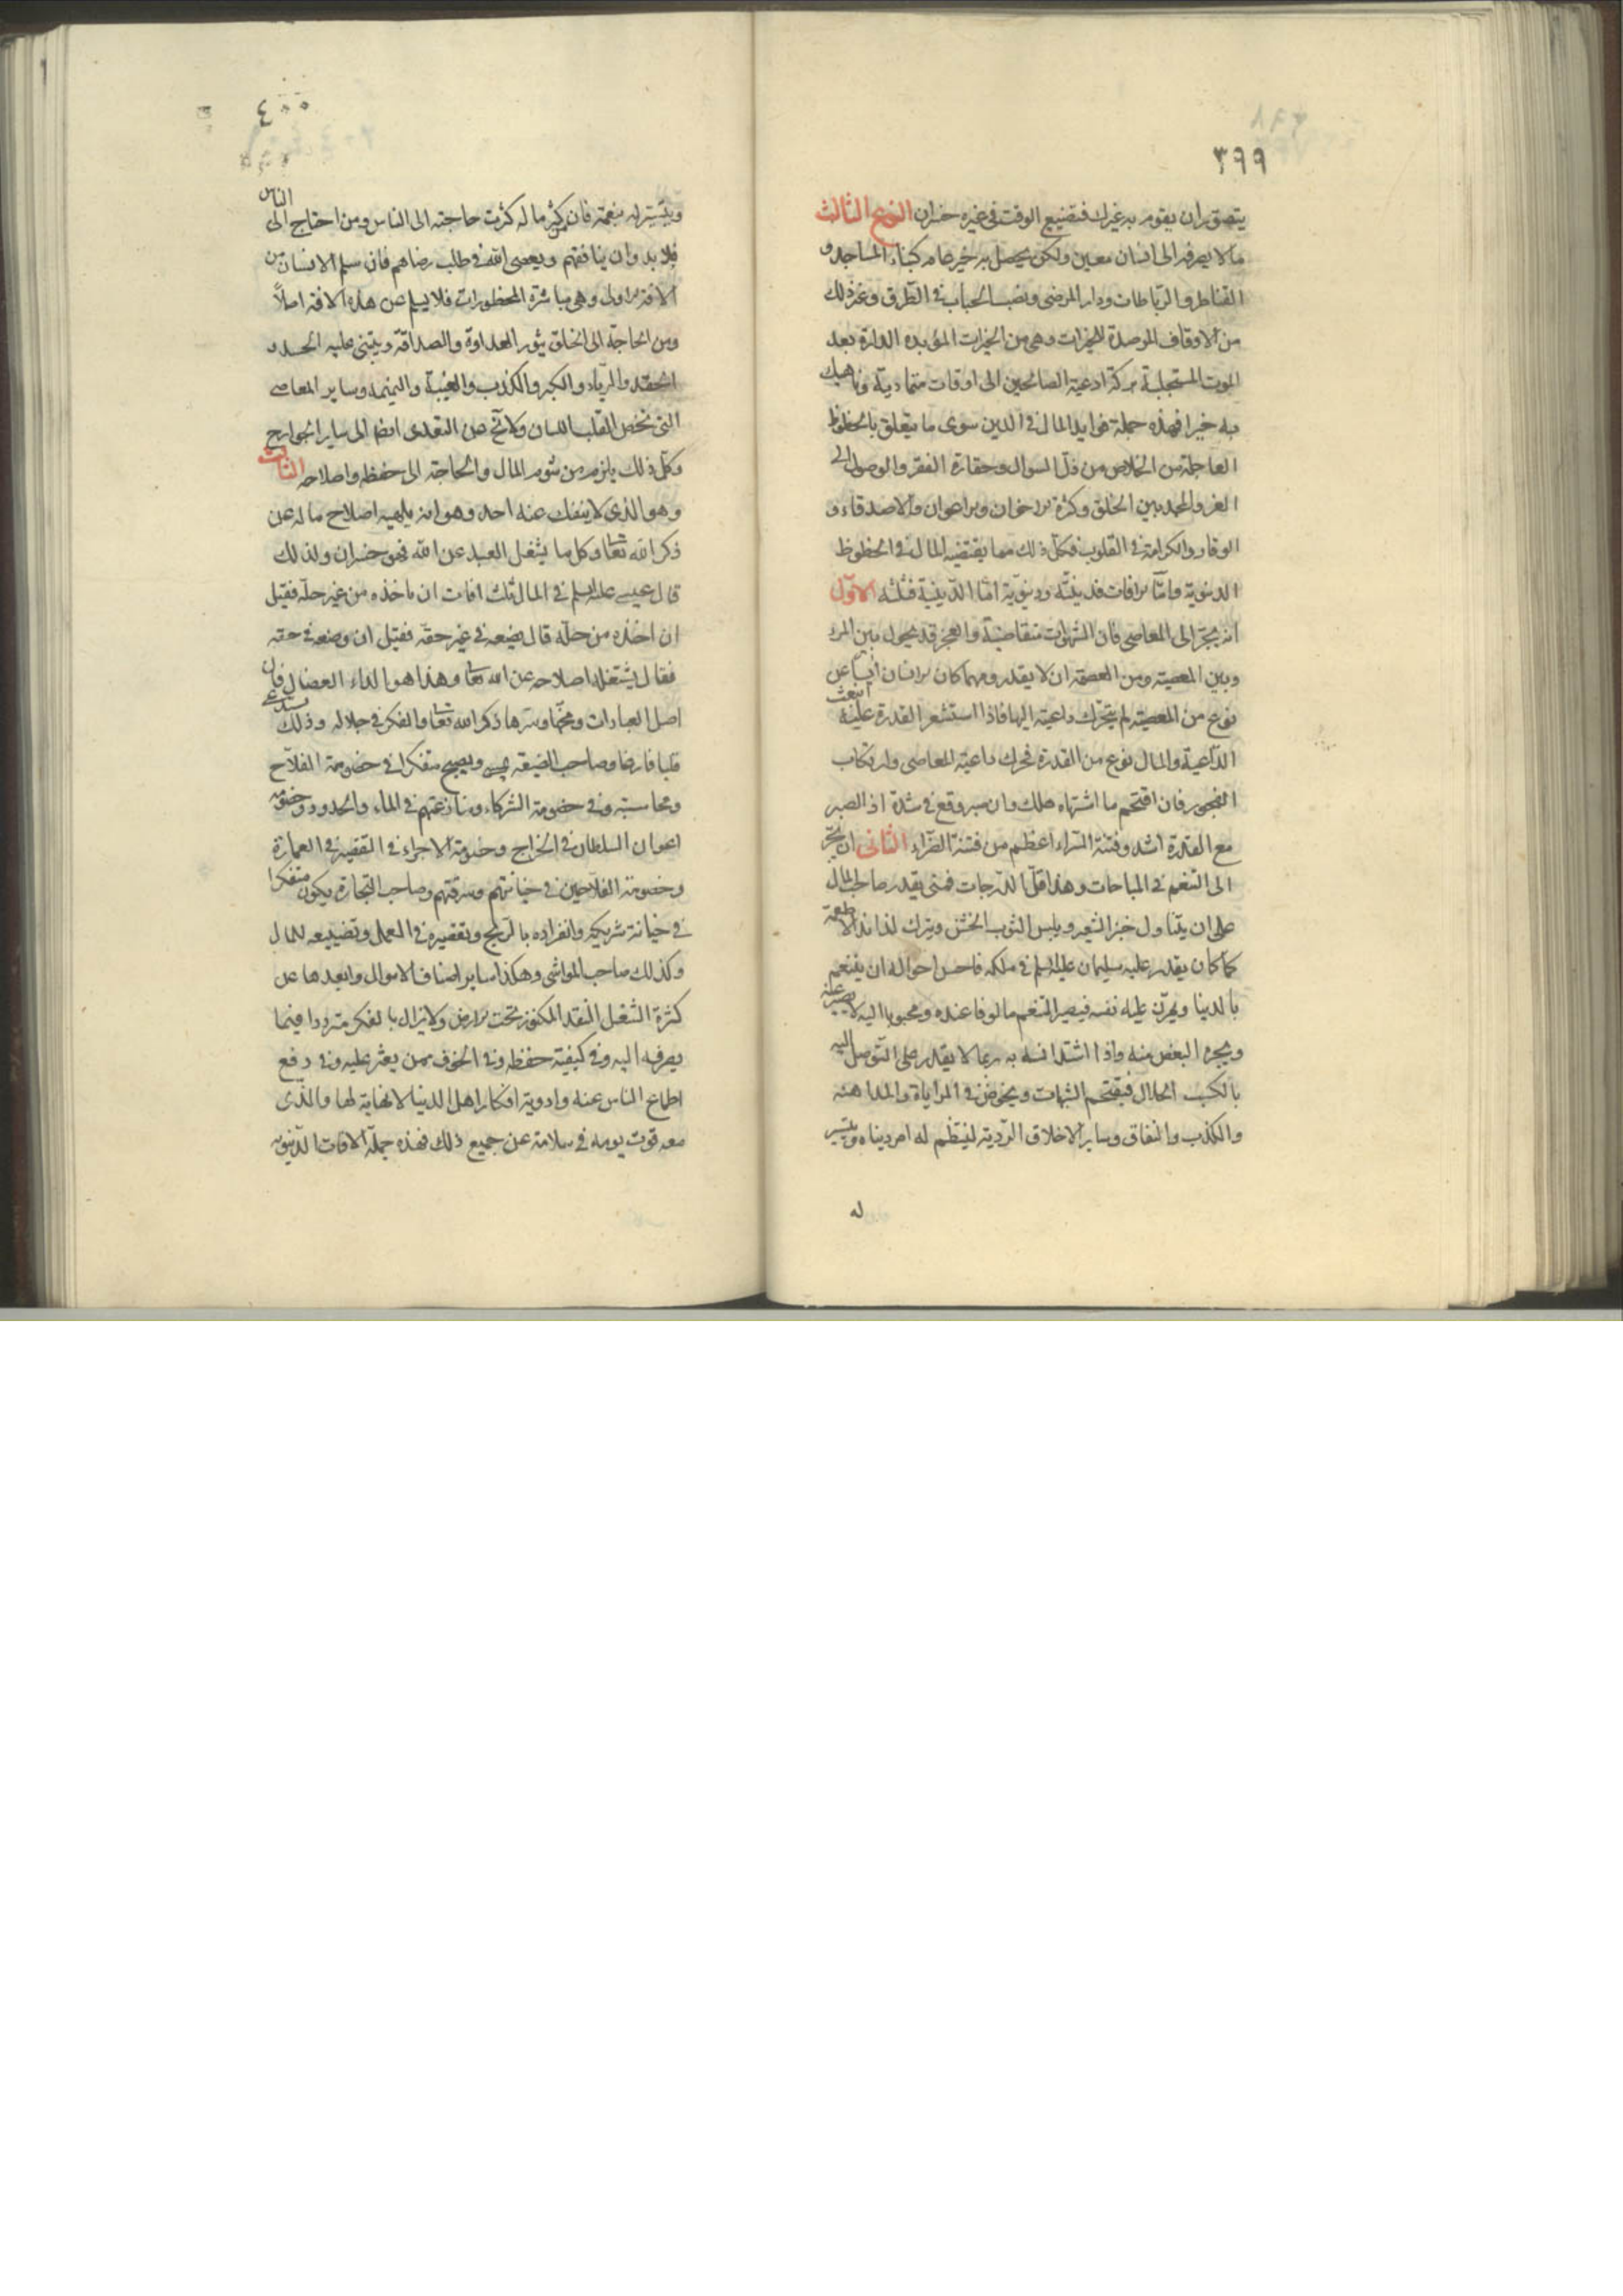 ٣٩٩
يتصور ان يقوم به غيرك فتضييع الوقت في غيره خسران النوع الثالث
ما لا يصرفه الى انسان معين ولكن يحصل به خير عام كبناء المساجد و
القناطر والرباطات ودار المرضى ونصب الحباب في الطرق وغير ذلك
من الاوقاف المرصدة للخيرات وهي من الخيرات المؤبده الدارة بعد
الموت المستجلبة بركة ادعية الصالحين الى اوقات متمادية وناهيك
به خيرا فهذه جملة فوايد المال في الدين سوى ما يتعلق بالحظوظ
العاجلة من الخلاص من ذل السوال وحقارة الفقر والوصول الى
العز والمجد بين الخلق وكثرة الاخوان والاعوان والاصدقاء و
الوقار والكرامة في القلوب فكل ذلك مما يقتضيه المال في الحظوظ
الدنيوية واما الافات فدينية ودنيوية اما الدينية فثلثه الاول
انه يجر الى المعاصي فان الشهوات متقاضية والعجز قد يحول بين المرء
وبين المعصية ومن العصمة ان لا يقدر ومهما كان الانسان آيسا عن
نوع من المعصية لم يتحرك داعيته اليها فاذا استشعر القدرة عليه انبعث
الداعية والمال نوع من القدرة يحرك داعية المعاصي وارتكاب
الفجور فان اقتحم ما اشتهاه هلك وان صبر وقع في شدة اذ الصبر
مع القدرة اشد وفتنة السراء اعظم من فتنة الضراء الثاني ان يجر
الى التنعم في المباحات وهذا اقل الدرجات فمتى يقدر صاحب المال
على ان يتناول خبز الشعير ويلبس الثوب الخشن ويترك لذايذ الاطعمة
كما كان يقدر عليه سليمان عليه السلم في ملكه فاحسن احواله ان يتنعم
بالدنيا ويمرن عليه نفسه فيصير التنعم مالوفا عنده ومحبوبا اليه لا يصبر عنه
ويجره البعض منه واذا اشتد انسه به ربما لا يقدر على التوصل اليه
بالكسب الحلال فيقتحم الشبهات ويخوض في المراياة والمداهنه
والكذب والنفاق وساير الاخلاق الردية لينتظم له امر دنياه ويتيسر
له
٤٠٠
ويتيسر له بنعمة فان كثر ماله كثرت حاجته الى الناس ومن احتاج الى الناس
فلا بد وان ينافقهم ويعصى الله في طلب رضاهم فان سلم الانسان من
الافة الاولى وهي مباشرة المحظورات فلا يسلم عن هذه الافة اصلاً
ومن الحاجة الى الخلق يثور العداوة والصداقة ويبتنى عليه الحسد و
الحقد والرياء والكبر والكذب والغيبة والنميمه وساير المعاصي
التي تخص القلب واللسان ولا تخ عن التعدى ايضا الى ساير الجوارح
وكل ذلك يلزم من شوم المال والحاجة الى حفظه واصلاحه الثالث
وهو الذي لا ينفك عنه احد وهو انه يلهيه اصلاح ماله عن
ذكر الله تعا وكل ما يشغل العبد عن الله فهو خسران ولذلك
قال عيسى عليه السلم في المال ثلث افات ان ياخذه من غير حله فقيل
ان اخذه من حله قال يضعه في غير حقه فقيل ان وضعه في حقه
فقال يشتغله اصلاحه عن الله تعا وهذا هو الداء العضال فان
اصل العبادات ومخها وسرها ذكر الله تعا والفكر في جلاله وذلك يستدعى
قلبا فارغا وصاحب الضيعه يمسي ويصبح متفكرا في خصومة الفلاح
ومحاسبته وفي خصومة الشركاء ومنازعتهم في الماء والحدود وخصومة
اعوان السلطان في الخراج وخصومة الاجراء في التقصير في العمارة
وخصومة الفلاحين في خيانتهم وسرقتهم وصاحب التجارة يكون متفكرا
في خيانة شريكه وانفراده بالربح وتقصيره في العمل وتضييعه للمال
وكذلك صاحب المواشي وهكذا ساير اصناف الاموال وابعدها عن
كثرة الشغل النقد المكنوز تحت الارض ولا يزال بالفكر مترددا فيما
يصرفه اليه وفي كيفية حفظه وفي الخوف ممن يعثر عليه وفي دفع
اطماع الناس عنه واودية افكار اهل الدنيا لا نهاية لها والذى
معه قوت يومه في سلامة عن جميع ذلك فهذه جملة الافات الدنيويه